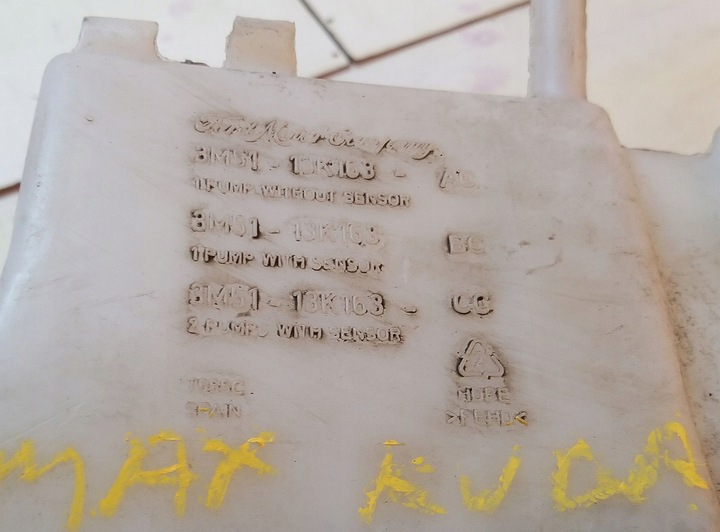 Ford Motor Company
3M51 - 13K163 -
1 PUMP WITHOUT SENSOR
3M51 - 13K163 BC
1 PUMP WITH SENSOR
3M51 - 13K163 - CC
2 PUMPS WITH SENSOR
HDPE
SPAIN >PEHD<
MAX RUDA